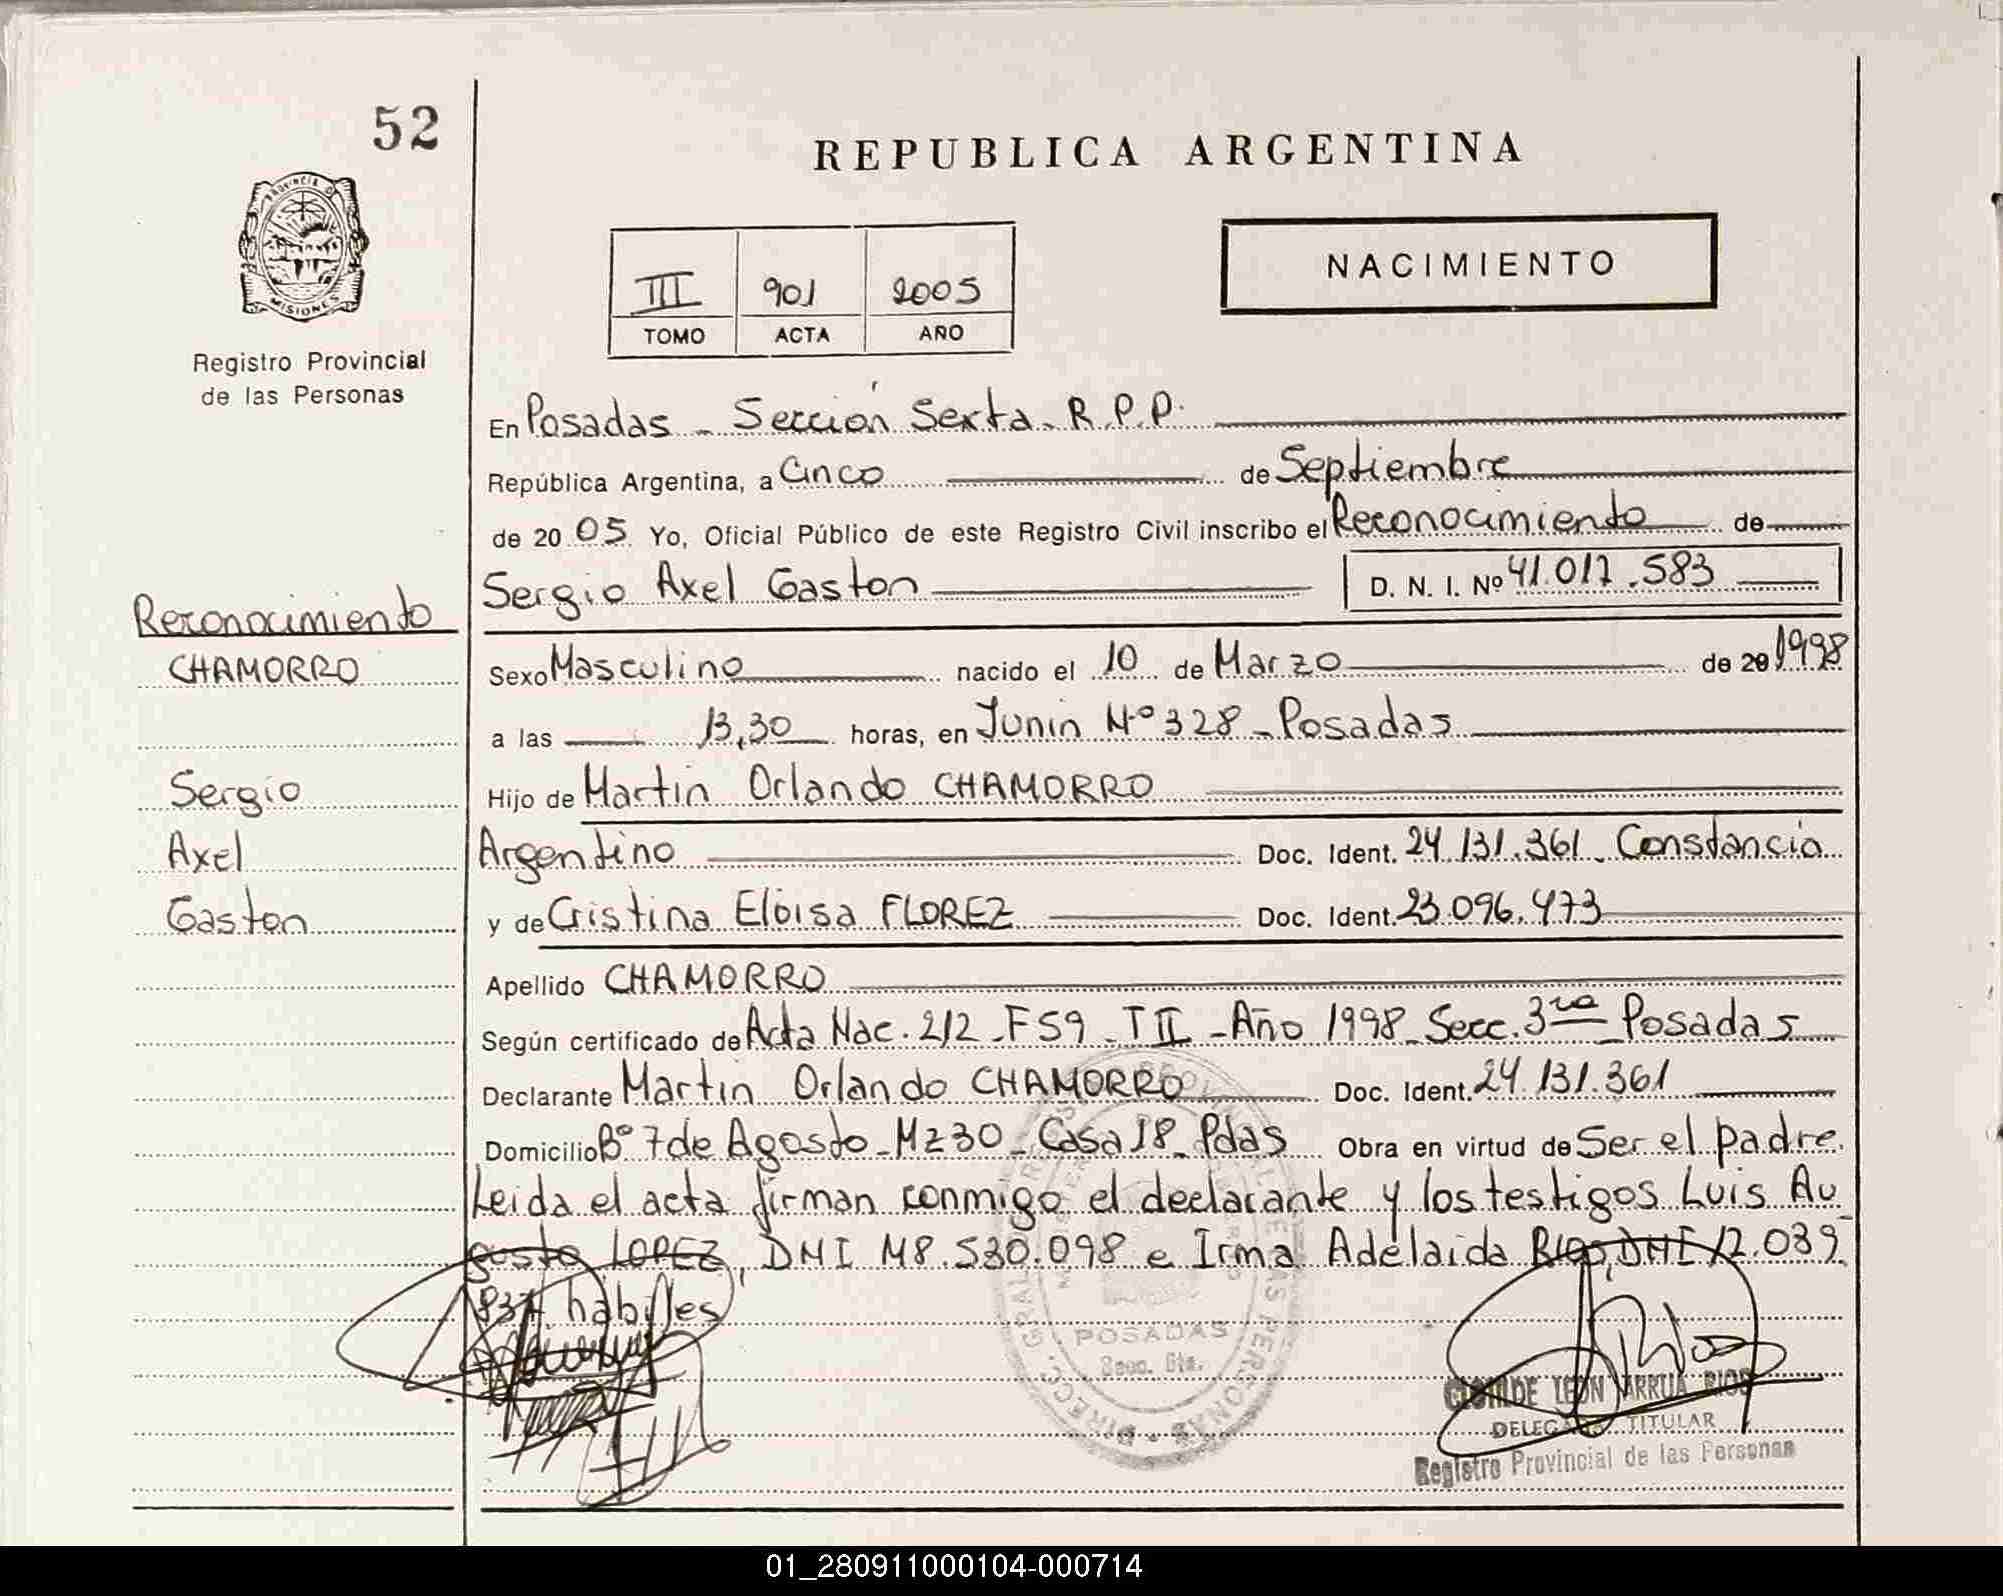 52
REPUBLICA ARGENTINA
PROVINCIA DE
MISIONES
NACIMIENTO
III 901 2005
TOMO ACTA AÑO
Registro Provincial
de las Personas
En Posadas - Sección Sexta - R.P.P.
República Argentina, a Cinco de Septiembre
de 2005 Yo, Oficial Público de este Registro Civil inscribo el Reconocimiento de
Sergio Axel Gaston D. N. I. Nº 41.017.583
Reconocimiento
CHAMORRO
Sergio
Axel
Gaston
Sexo Masculino nacido el 10 de Marzo de 20 1998
a las 13,30 horas, en Junin Nº 328 - Posadas
Hijo de Martin Orlando CHAMORRO
Argentino Doc. Ident. 24.131.361 - Constancia
y de Cristina Eloisa FLOREZ Doc. Ident. 23.096.473
Apellido CHAMORRO
Según certificado de Acta Nac. 212 - F59 - T II - Año 1998 - Secc. 3ra - Posadas
Declarante Martin Orlando CHAMORRO Doc. Ident. 24.131.361
Domicilio Bº 7 de Agosto - Mz 30 - Casa 18 - Pdas Obra en virtud de Ser el padre.
Leida el acta firman conmigo el declarante y los testigos Luis Au
gusto LOPEZ, DNI M8.530.098 e Irma Adelaida DNI 12.039.
837 habiles
POSADAS
Secc. 6ta.
DIRECC. GRAL. PERSONAS
CLOTILDE LEON ARRUA RIOS
DELEGADA TITULAR
Registro Provincial de las Personas
01_280911000104-000714